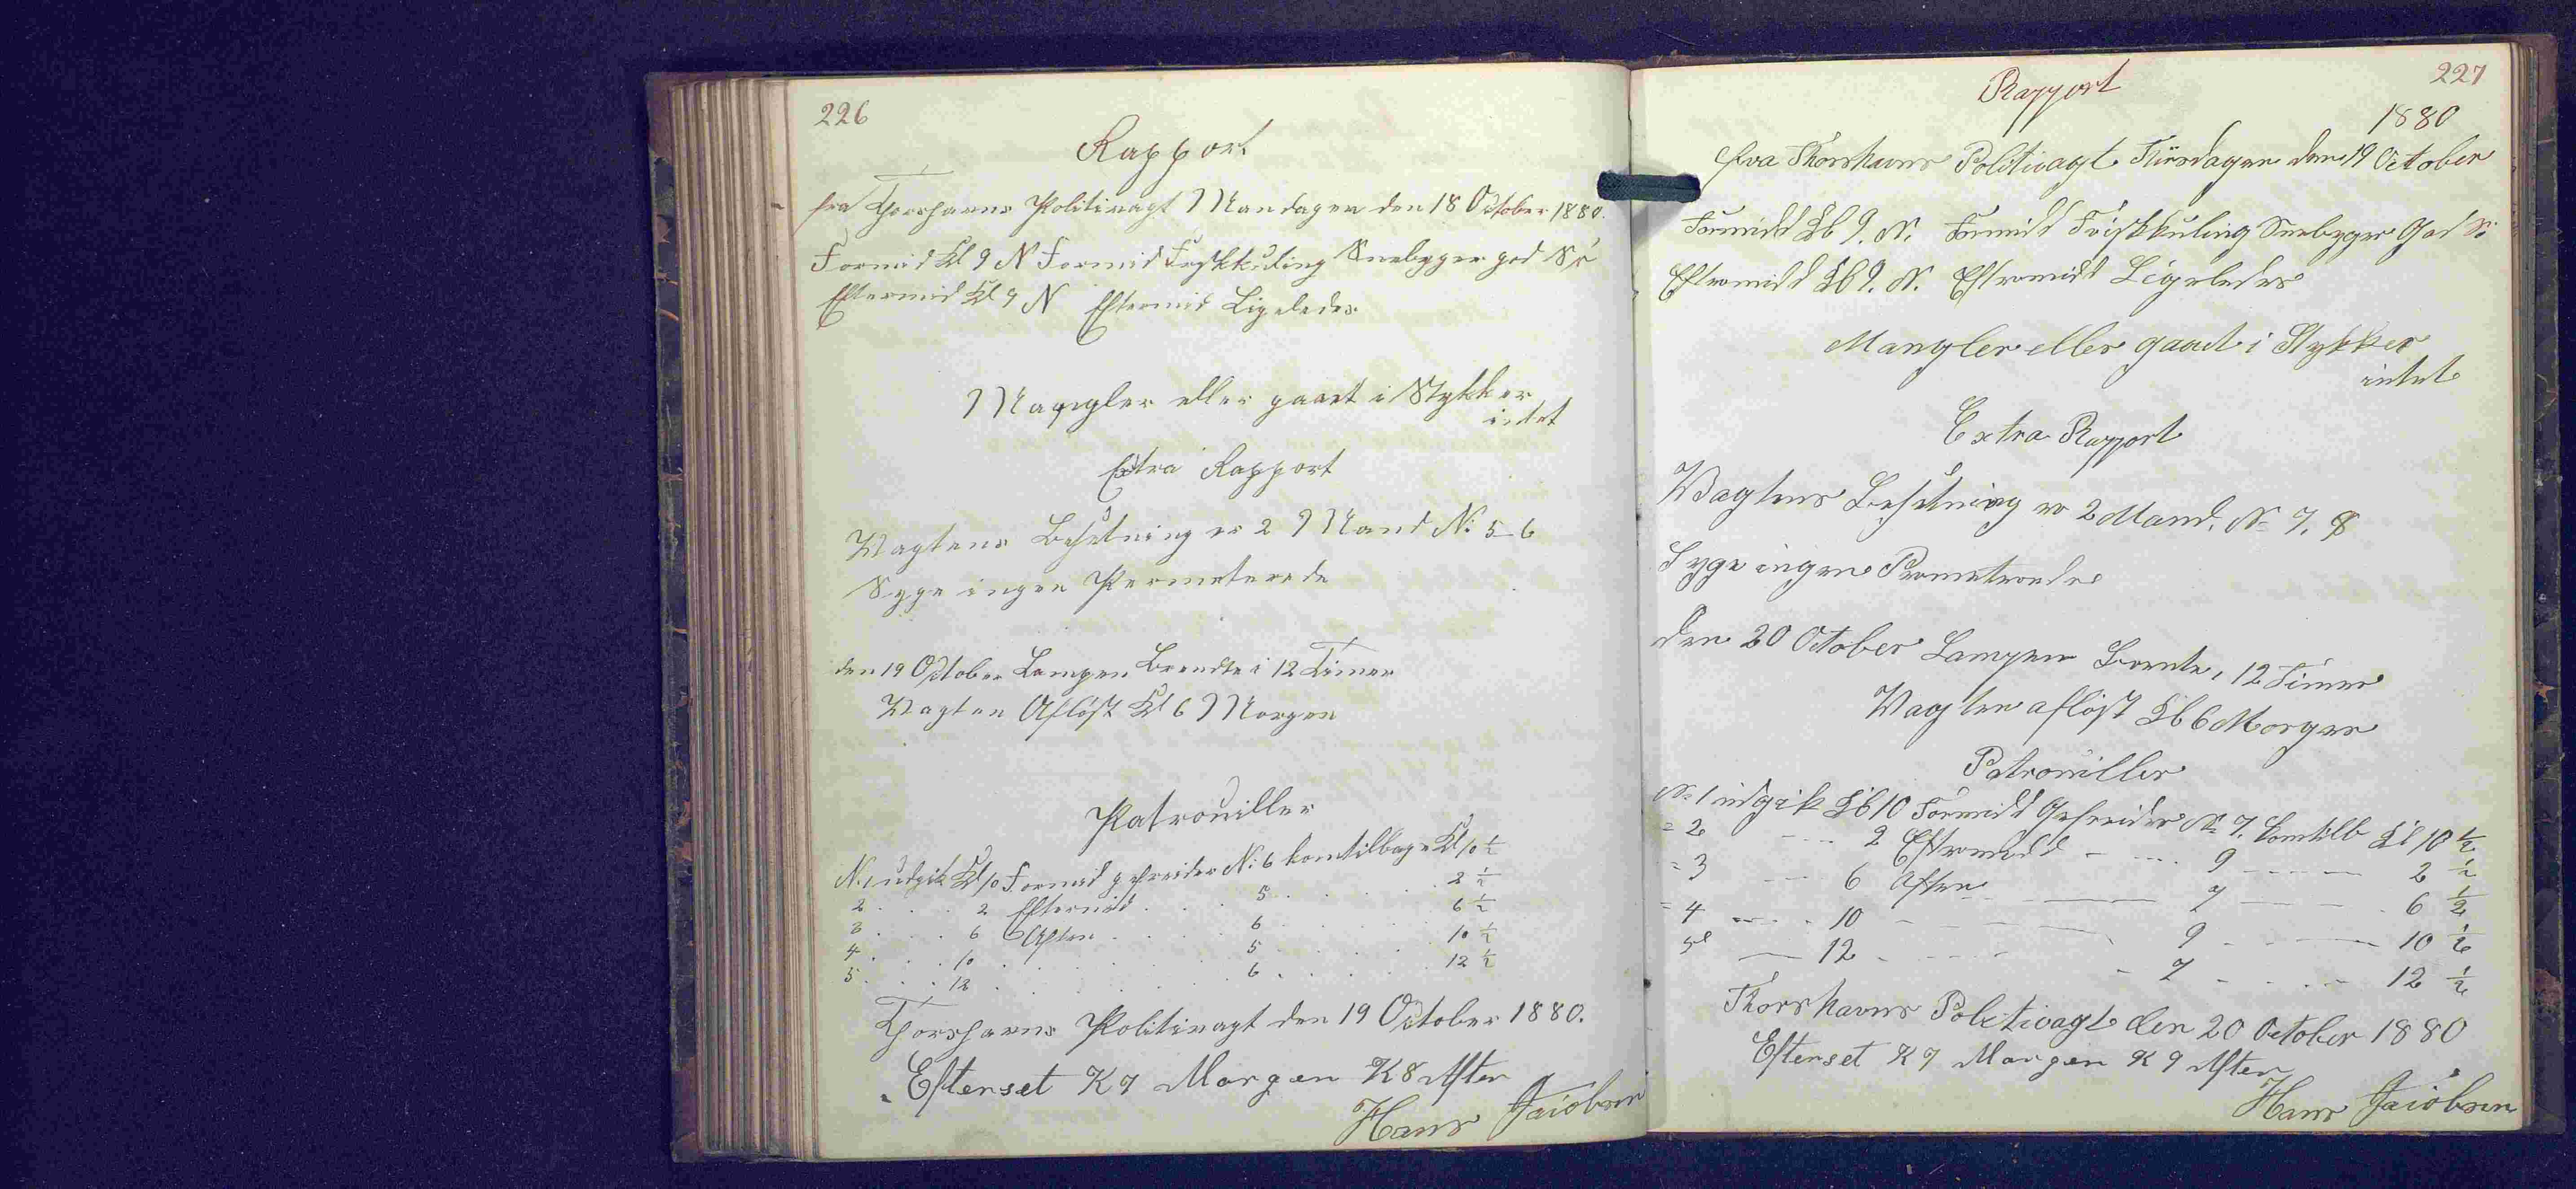 226
Rapport
fra Thorshavns Politivagt Mandagen den 18 October 1880.
Formid Kl 9 N Formid Friskkuling Sneebyger god Sø
Eftermid Kl 9 N Eftermid Ligeledes
Mangler eller gaaet i Stykker
intet
Extra Rapport
Vagtens Besetning er 2 Mand N: 5-6
Syge ingen Permeterede
den 19 October Lampen Brendte i 12 Timer
Vagten Afløst Kl 6 Morgen
Patrouiller
N: 1 udgik Kl 10 Formid gefreider N: 6 kom tilbage Kl 10 ½
2 . . . 2 Eftermid . . . 5 . . . 2 ½
3 . . . 6 Aften . . . 6 . . . 6 ½
4 . . . 10 . . . 5 . . . 10 ½
5 . . . 12 . . . 6 . . . 12 ½
Thorshavns Politivagt den 19 October 1880.
Efterset K 7 Morgen K 8 Aften
Hans Jacobsen
227
Rapport
1880
fra Thorshavns Politivagt Tirsdagen den 19 October
Formidd Kl 9. N. Formidd Friskkuling Sneebyger God Sø
Eftermidd Kl 9. N. Eftermidd Ligeledes
Mangler eller gaaet i Stykker
intet
Extra Rapport
Vagtens Besetning er 2 Mand. N= 7. 9
Syge ingen Permeterede
den 20 October Lampen Brente, 12 Timer
Vagten afløst Kl 6 Morgen
Patrouiller
N= 1 udgik Kl 10 Formidd Gefreider N= 7. kom tilb Kl 10 ½
= 2 - - - 2 Eftermidd - - - 9 - - - 2 ½
= 3 - - - 6 Aften - - - 7 - - - 6 ½
= 4 - - - 10 - - - 9 - - - 10 ½
5 - - - 12 - - - 7 - - - 12 ½
Thorshavns Politivagt den 20 October 1880
Efterset K 7 Morgen K 9 Aften
Hans Jacobsen